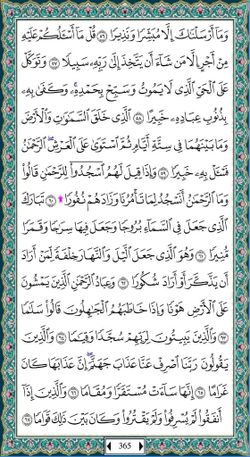 وَمَآ أَرْسَلْنَٰكَ إِلَّا مُبَشِّرًا وَنَذِيرًا ۝٥٦ قُلْ مَآ أَسْـَٔلُكُمْ عَلَيْهِ
مِنْ أَجْرٍ إِلَّا مَن شَآءَ أَن يَتَّخِذَ إِلَىٰ رَبِّهِۦ سَبِيلًا ۝٥٧ وَتَوَكَّلْ
عَلَى ٱلْحَىِّ ٱلَّذِى لَا يَمُوتُ وَسَبِّحْ بِحَمْدِهِۦ ۚ وَكَفَىٰ بِهِۦ
بِذُنُوبِ عِبَادِهِۦ خَبِيرًا ۝٥٨ ٱلَّذِى خَلَقَ ٱلسَّمَٰوَٰتِ وَٱلْأَرْضَ
وَمَا بَيْنَهُمَا فِى سِتَّةِ أَيَّامٍ ثُمَّ ٱسْتَوَىٰ عَلَى ٱلْعَرْشِ ۚ ٱلرَّحْمَٰنُ
فَسْـَٔلْ بِهِۦ خَبِيرًا ۝٥٩ وَإِذَا قِيلَ لَهُمُ ٱسْجُدُوا۟ لِلرَّحْمَٰنِ قَالُوا۟
وَمَا ٱلرَّحْمَٰنُ أَنَسْجُدُ لِمَا تَأْمُرُنَا وَزَادَهُمْ نُفُورًا ۩ ۝٦٠ تَبَارَكَ
ٱلَّذِى جَعَلَ فِى ٱلسَّمَآءِ بُرُوجًا وَجَعَلَ فِيهَا سِرَٰجًا وَقَمَرًا
مُّنِيرًا ۝٦١ وَهُوَ ٱلَّذِى جَعَلَ ٱلَّيْلَ وَٱلنَّهَارَ خِلْفَةً لِّمَنْ أَرَادَ
أَن يَذَّكَّرَ أَوْ أَرَادَ شُكُورًا ۝٦٢ وَعِبَادُ ٱلرَّحْمَٰنِ ٱلَّذِينَ يَمْشُونَ
عَلَى ٱلْأَرْضِ هَوْنًا وَإِذَا خَاطَبَهُمُ ٱلْجَٰهِلُونَ قَالُوا۟ سَلَٰمًا
۝٦٣ وَٱلَّذِينَ يَبِيتُونَ لِرَبِّهِمْ سُجَّدًا وَقِيَٰمًا ۝٦٤ وَٱلَّذِينَ
يَقُولُونَ رَبَّنَا ٱصْرِفْ عَنَّا عَذَابَ جَهَنَّمَ ۖ إِنَّ عَذَابَهَا كَانَ
غَرَامًا ۝٦٥ إِنَّهَا سَآءَتْ مُسْتَقَرًّا وَمُقَامًا ۝٦٦ وَٱلَّذِينَ إِذَآ
أَنفَقُوا۟ لَمْ يُسْرِفُوا۟ وَلَمْ يَقْتُرُوا۟ وَكَانَ بَيْنَ ذَٰلِكَ قَوَامًا ۝٦٧
365